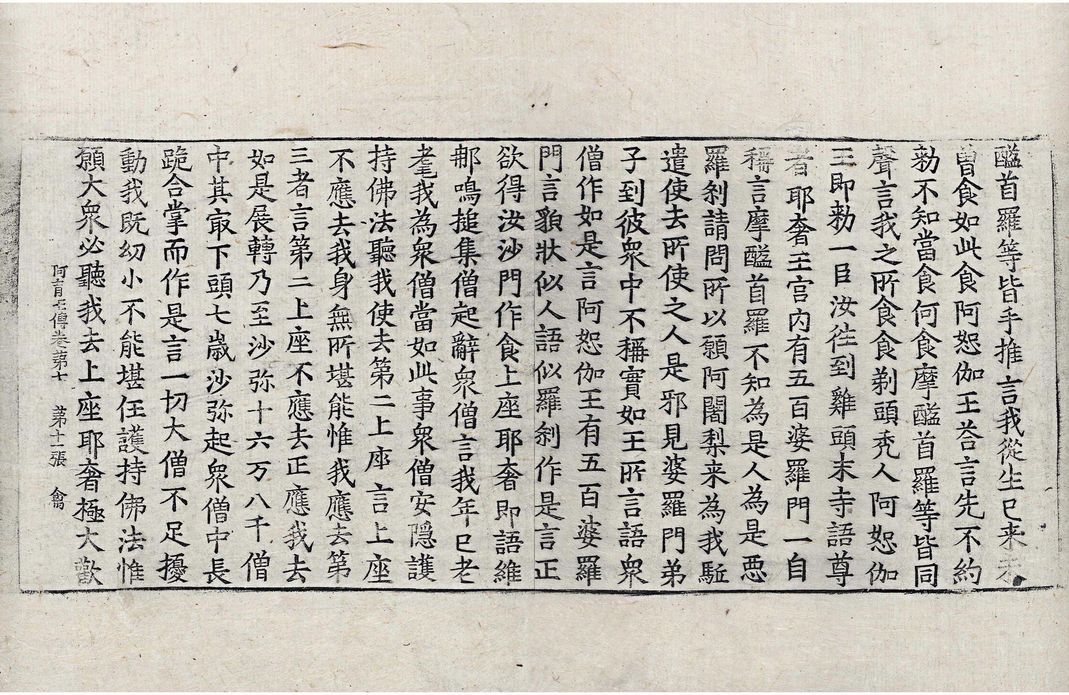 醯首羅等皆手推言我從生已来未
曽食如此食阿恕伽王荅言先不約
勑不知當食何食摩醯首羅等皆同
聲言我之所食食剃頭秃人阿恕伽
王即勑一臣汝徃到雞頭末寺語尊
者耶奢王宫内有五百婆羅門一自
稱言摩醯首羅不知為是人為是惡
羅剎請問所以願阿闍梨来為我駈
遣使去所使之人是邪見婆羅門弟
子到彼衆中不稱實如王所言語衆
僧作如是言阿恕伽王有五百婆羅
門言貌狀似人語似羅剎作是言正
欲得汝沙門作食上座耶奢即語維
那鳴搥集僧起辭衆僧言我年已老
耄我為衆僧當如此事衆僧安隱護
持佛法聽我使去第二上座言上座
不應去我身無所堪能惟我應去第
三者言第二上座不應去正應我去
如是展轉乃至沙弥十六万八千僧
中其㝡下頭七歳沙弥起衆僧中長
跪合掌而作是言一切大僧不足擾
動我既幼小不能堪任護持佛法惟
願大衆必聽我去上座耶奢極大歡
阿育王傳卷第七　第十一張　禽